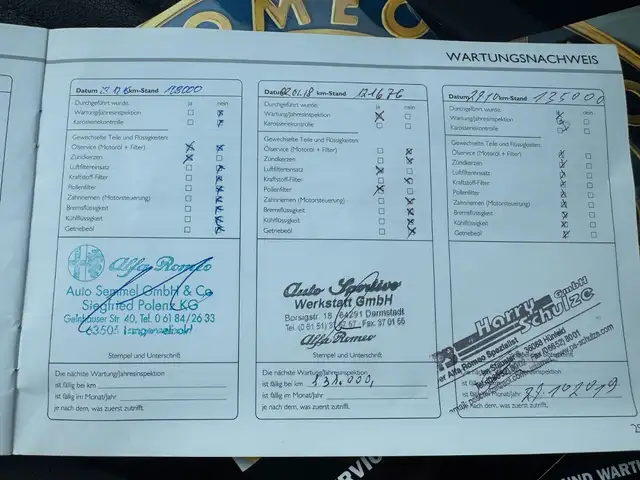 OMEO
WARTUNGSNACHWEIS
Datum km-Stand 118000
Durchgeführt wurde: ja nein
Wartung/Jahresinspektion
Karosseriekontrolle
Gewechselte Teile und Flüssigkeiten:
Ölservice (Motoröl + Filter)
Zündkerzen
Luftfiltereinsatz
Kraftstoff-Filter
Pollenfilter
Zahnriemen (Motorsteuerung)
Bremsflüssigkeit
Kühlflüssigkeit
Getriebeöl
Alfa Romeo
Auto Semmel GmbH & Co
Siegfried Polenz KG
Gelnhäuser Str. 40, Tel. 0 61 84/26 33
63505 Langenselbold
Stempel und Unterschrift
Die nächste Wartung/Jahresinspektion
ist fällig bei km
ist fällig im Monat/Jahr
je nach dem, was zuerst zutrifft.
Datum 02.01.18 km-Stand 121676
Durchgeführt wurde: ja nein
Wartung/Jahresinspektion
Karosseriekontrolle
Gewechselte Teile und Flüssigkeiten:
Ölservice (Motoröl + Filter)
Zündkerzen
Luftfiltereinsatz
Kraftstoff-Filter
Pollenfilter
Zahnriemen (Motorsteuerung)
Bremsflüssigkeit
Kühlflüssigkeit
Getriebeöl
Auto Sportivo
Werkstatt GmbH
Borsigstr. 18 / 64291 Darmstadt
Tel. (0 61 51) 37 57 57 Fax 37 01 66
Alfa Romeo
Stempel und Unterschrift
Die nächste Wartung/Jahresinspektion
ist fällig bei km 131.000,
ist fällig im Monat/Jahr
je nach dem, was zuerst zutrifft.
Datum 29.10 km-Stand 135000
Durchgeführt wurde: ja nein
Wartung/Jahresinspektion
Karosseriekontrolle
Gewechselte Teile und Flüssigkeiten:
Ölservice (Motoröl + Filter)
Zündkerzen
Luftfiltereinsatz
Kraftstoff-Filter
Pollenfilter
Zahnriemen (Motorsteuerung)
Bremsflüssigkeit
Kühlflüssigkeit
Getriebeöl
Harry Schulze GmbH
Alfa Romeo Spezialist
36088 Hünfeld
Stempel und Unterschrift
Die nächste Wartung/Jahresinspektion
ist fällig im Monat/Jahr 29.10 2019
je nach dem, was zuerst zutrifft.
25